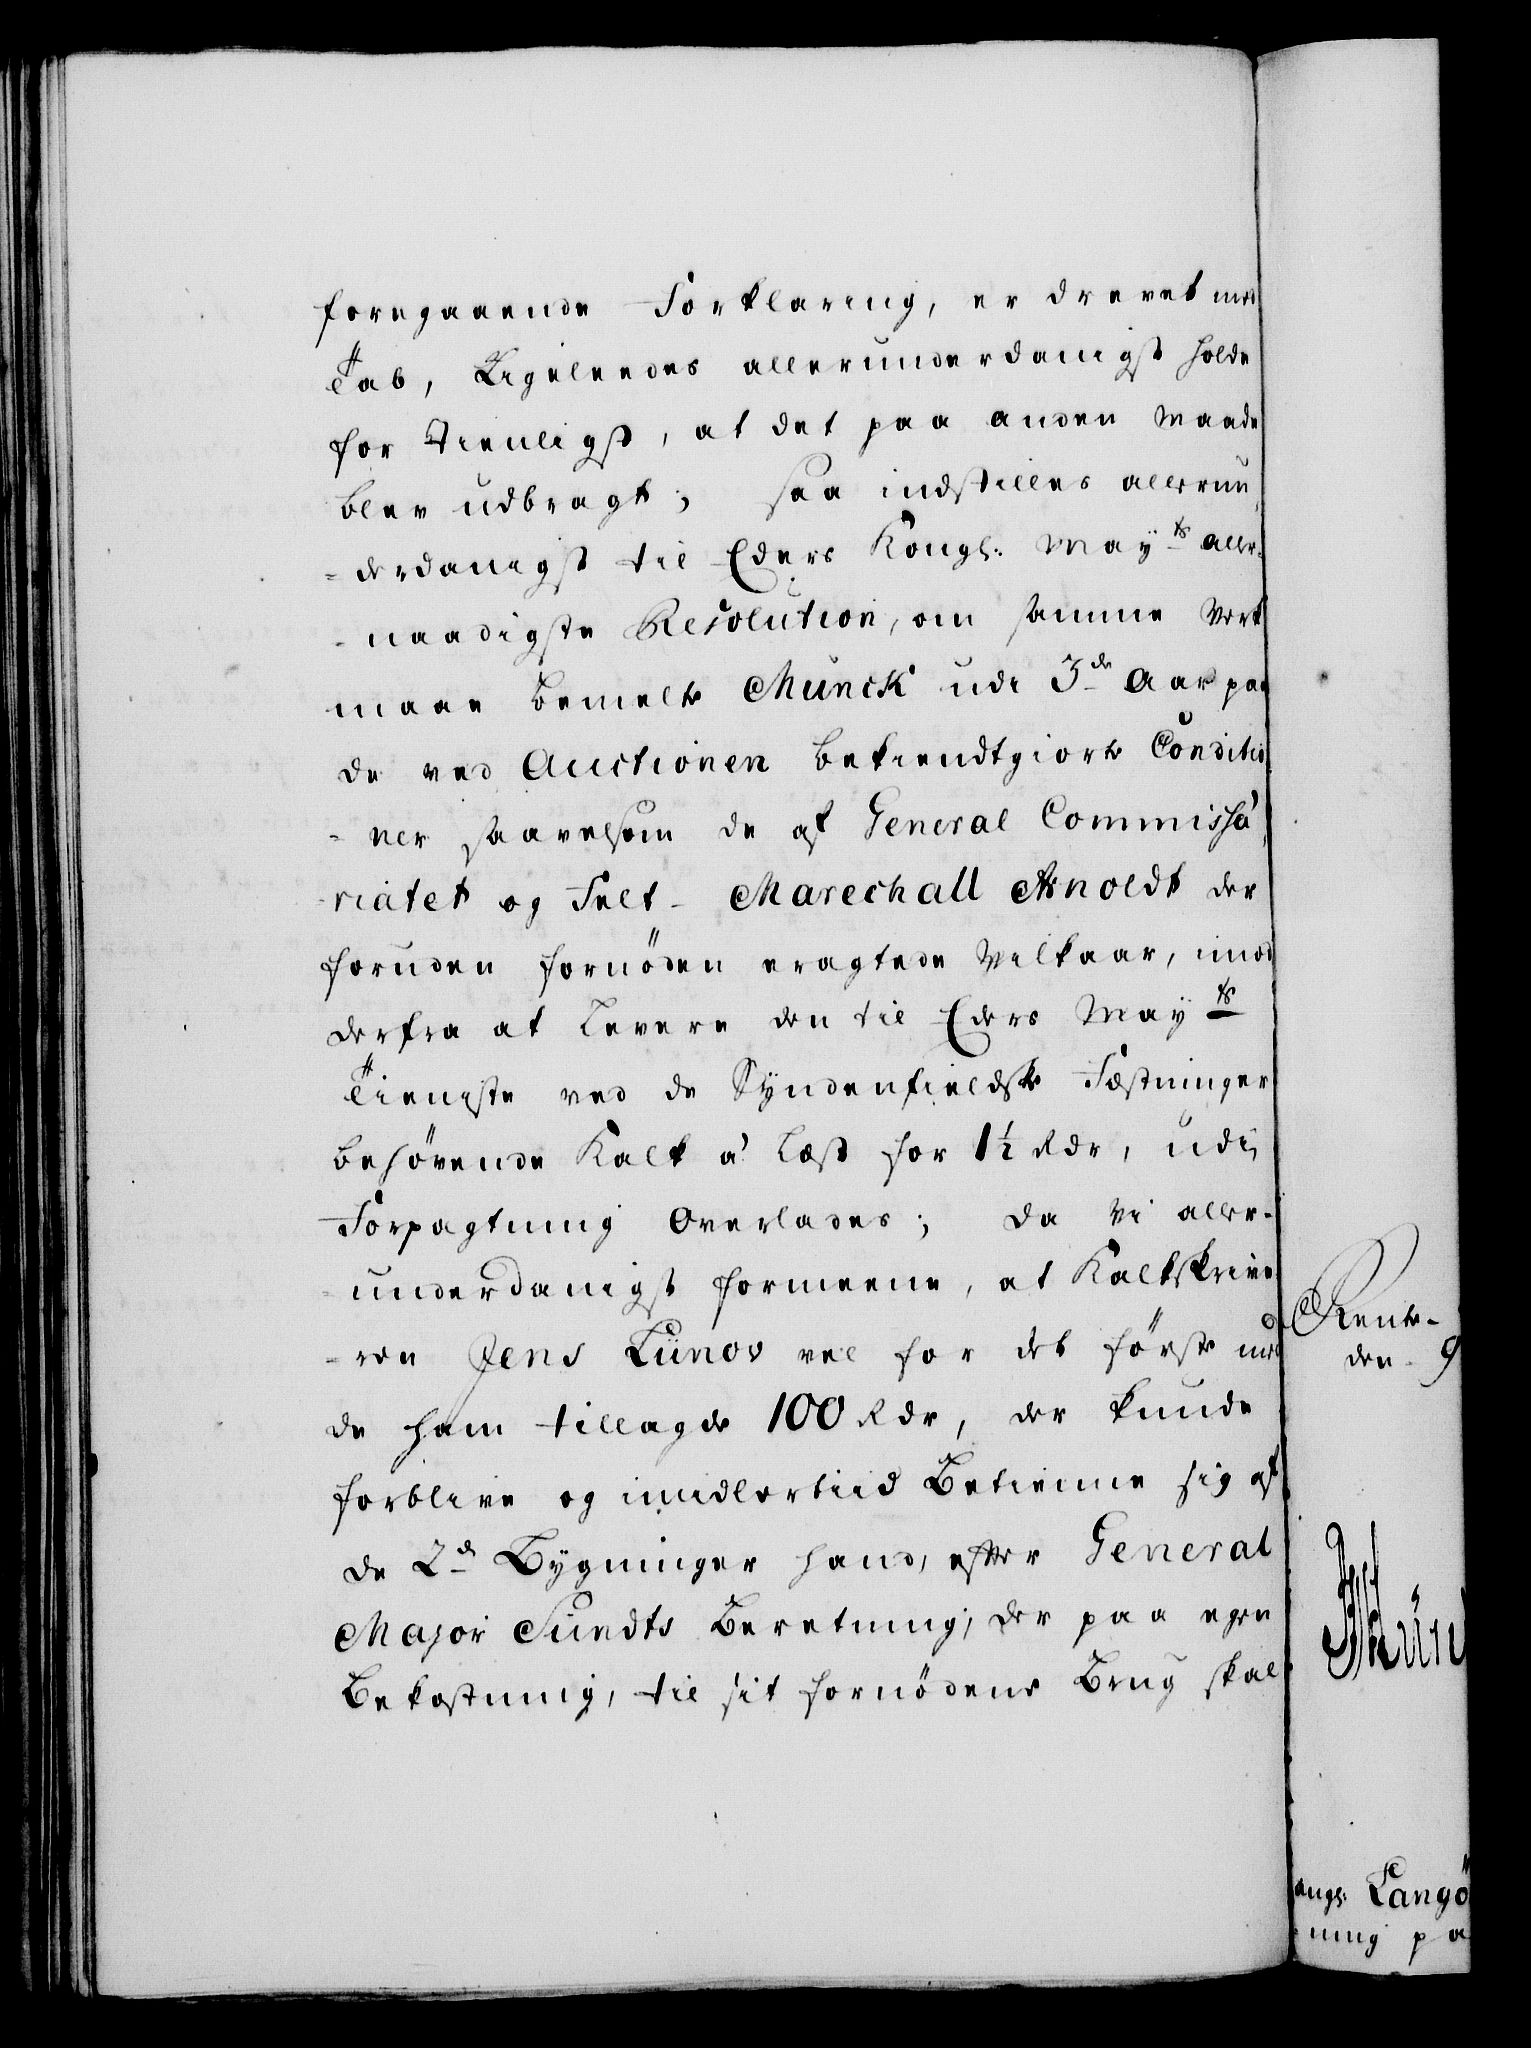 foregaaende Forklaring, er drevet med
Tab, Ligeleedes allerunderdanigst holde
for tienligst, at det paa anden Maade
blev udbragt; saa indstilles allerun¬
=derdanigst til Eders Kongl: May^ts aller¬
-naadigste Resolution, om samme Verk
maae bemelte Munck udi 3^de Aar paa
de ved Auctionen bekiendtgiorte Conditio
-ner saavelsom de af General Commissa
-riatet og Felt-Marechall Arnoldt der
foruden fornöden eragtede Velkaar, imod
derfra at levere den til Eders May^ts
Tieniste ved de Syndenfieldske Fæstninger
behövende Kalk à Læst for 1½ Rdr, udi
Forpagtning Overlades; da Vi aller¬
-underdanigst formeene, at Kalkskrive
-ren Jens Lünow vel for det förste med
de ham tillagde 100 Rdr, der kunde
forblive og imidlertiid Betienne sig af
de 2^de Bygninger hand, efter General
Major Sundts Beretning, der paa egen
Bekostning, til sit fornödene Brug skal
Rente-
den 9
ongl: Langö
ning pa